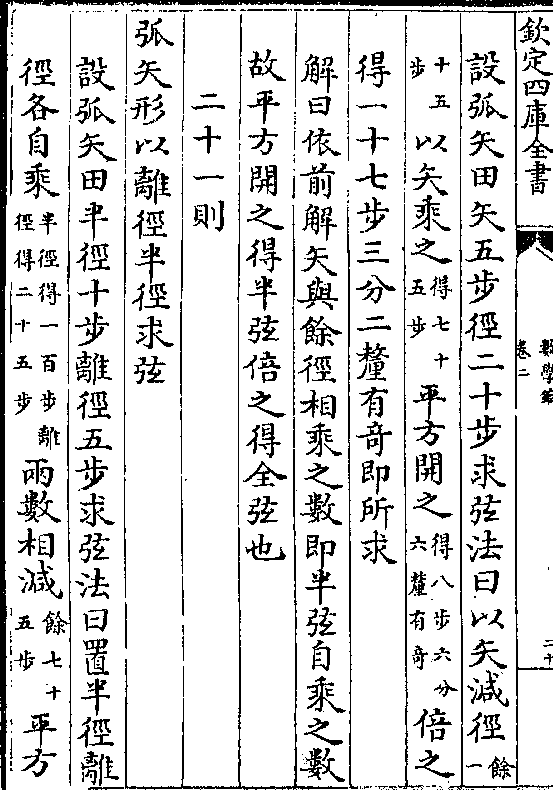 欽定四庫全書
卷二
設弧矢田矢五步徑二十步求弦法曰以矢減徑餘一
十五步以矢乘之得七十五步平方開之得八步六分六釐有奇倍之
得一十七步三分二釐有奇即所求
解曰依前解矢與餘徑相乘之數即半弦自乘之數
故平方開之得半弦倍之得全弦也
二十一則
弧矢形以離徑半徑求弦
設弧矢田半徑十步離徑五步求弦法曰置半徑離
徑各自乘半徑得一百步離徑得二十五步兩數相減餘七十五步平方